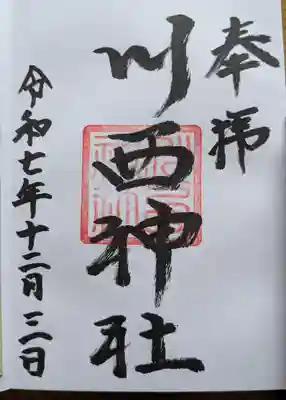 奉拝
川西神社
令和七年十二月三日